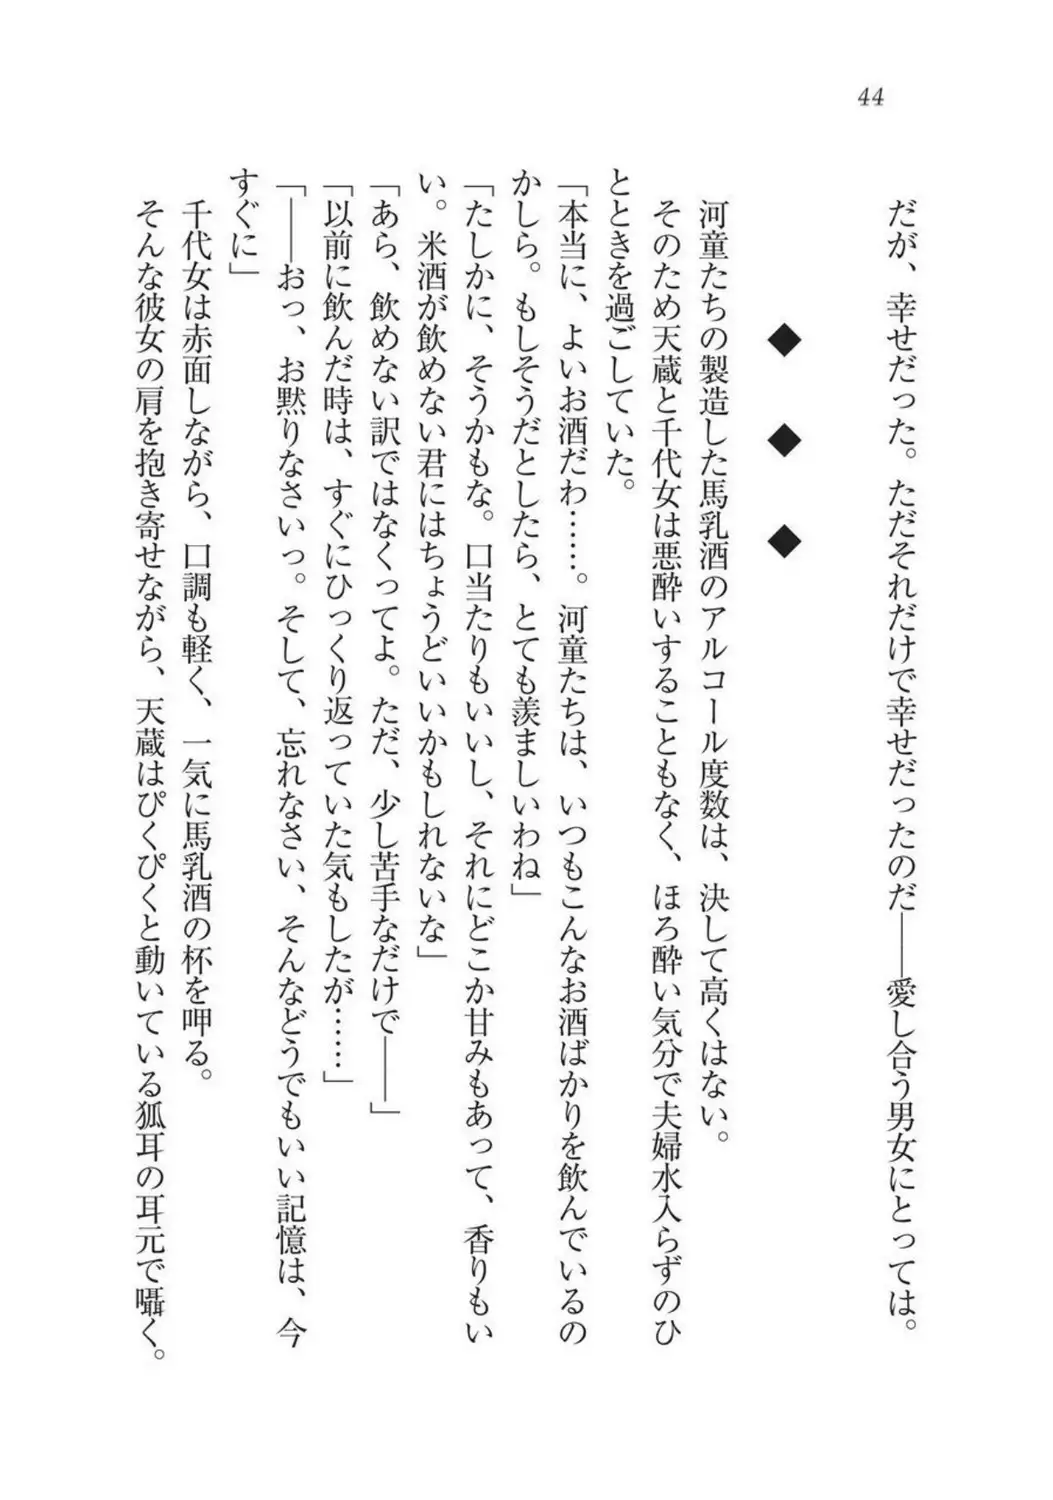 44
だが、幸せだった。ただそれだけで幸せだったのだ――愛し合う男女にとっては。
◆ ◆ ◆
河童たちの製造した馬乳酒のアルコール度数は、決して高くはない。
そのため天蔵と千代女は悪酔いすることもなく、ほろ酔い気分で夫婦水入らずのひ
とときを過ごしていた。
「本当に、よいお酒だわ……。河童たちは、いつもこんなお酒ばかりを飲んでいるの
かしら。もしそうだとしたら、とても羨ましいわね」
「たしかに、そうかもな。口当たりもいいし、それにどこか甘みもあって、香りもい
い。米酒が飲めない君にはちょうどいいかもしれないな」
「あら、飲めない訳ではなくってよ。ただ、少し苦手なだけで――」
「以前に飲んだ時は、すぐにひっくり返っていた気もしたが……」
「――おっ、お黙りなさいっ。そして、忘れなさい、そんなどうでもいい記憶は、今
すぐに」
千代女は赤面しながら、口調も軽く、一気に馬乳酒の杯を呷る。
そんな彼女の肩を抱き寄せながら、天蔵はぴくぴくと動いている狐耳の耳元で囁く。